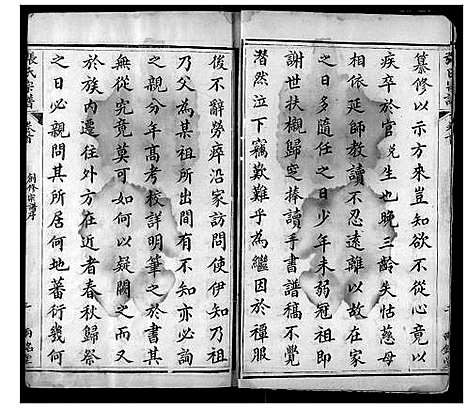 纂修以示方來豈知欲不從心竟以
疾卒於官兌生也晚三齡失怙慈母
相依延師教讀不忍遠離以故在家
之日多隨任之日少年未弱冠祖即
謝世扶櫬歸窆捧讀手書譜稿不覺
潸然泣下竊歎難乎為繼因於禫服
後不辭勞瘁沿家訪問使伊知乃祖
乃父為某祖所出間有不知亦必詢
某祖分年高考校詳明筆之於書其
無從究竟莫可如何以疑闕之而又
於族內遷往外方在近者春秋歸祭
之日必親問其所居何地蕃衍幾何
張氏宗譜
卷首
創修宗譜序